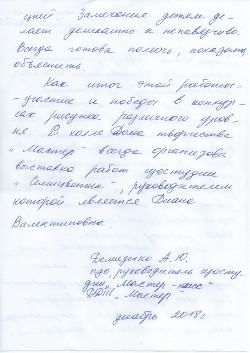 ций. Замечания детям де-
лает деликатно и ненавязчиво.
Всегда готова помочь, показать,
объяснить.
Как итог этой работы -
участие и победы в конкур-
сах рисунка различного уров-
ня. В холле Дома творчества
"Мастер" всегда организова
выставка работ изостудии
руководителем
которой является Диана
Валентиновна.
А. Ю.
пдо, руководитель изосту-
дии "Мастер-класс"
ДДТ "Мастер"
декабрь 2018 г.